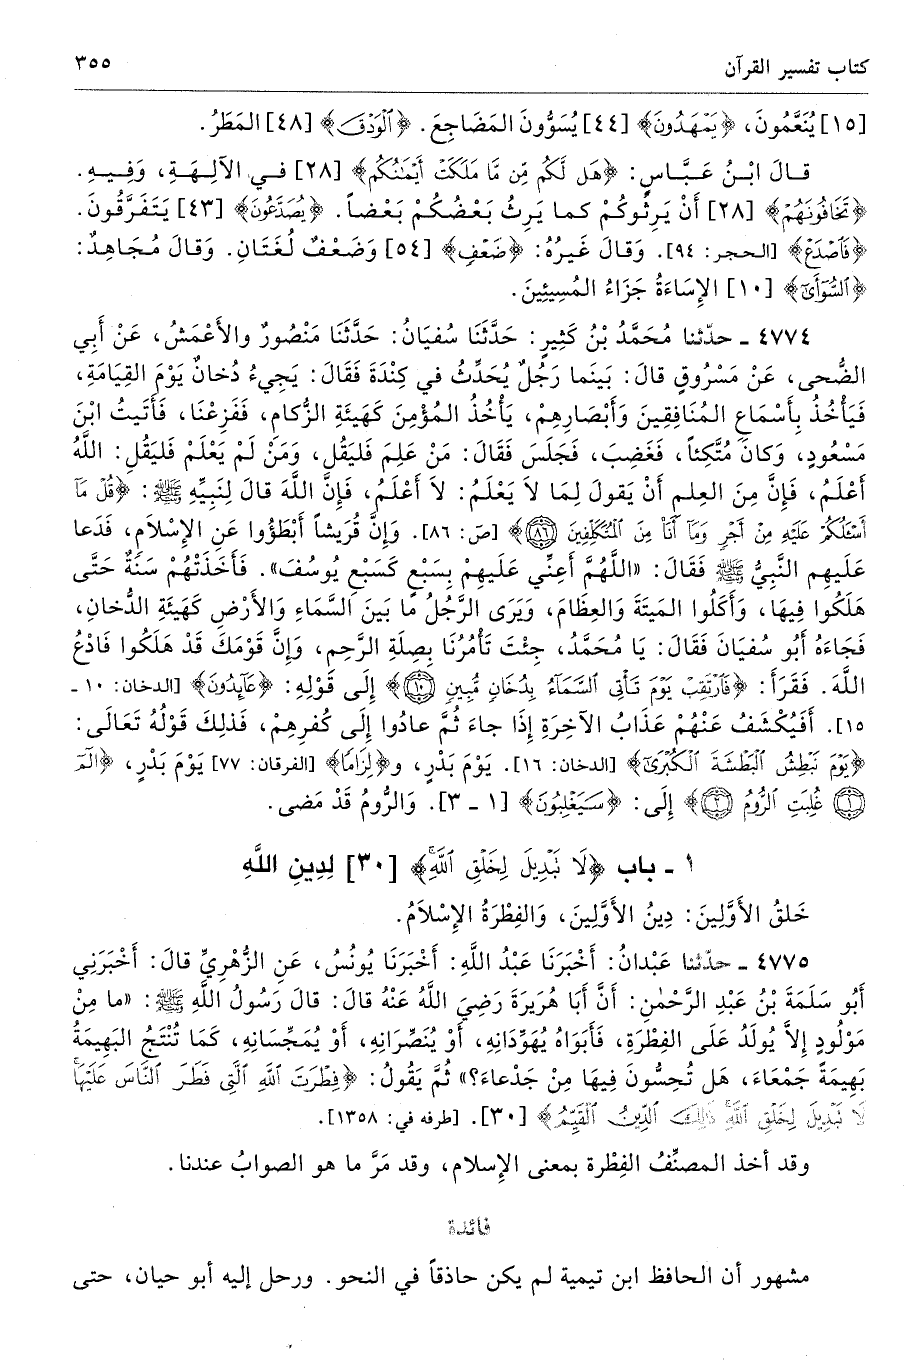 كتاب تفسير القرآن ٣٥٥
[١٥] يُنَعَّمُونَ، ﴿يَمْهَدُونَ﴾ [٤٤] يُسَوُّونَ المَضَاجِعَ. ﴿ٱلْوَدْقَ﴾ [٤٨] المَطَرُ.
قالَ ابْنُ عَبَّاسٍ: ﴿هَل لَّكُم مِّن مَّا مَلَكَتْ أَيْمَٰنُكُم﴾ [٢٨] في الآلِهَةِ، وَفِيهِ.
﴿تَخَافُونَهُمْ﴾ [٢٨] أَنْ يَرِثُوكُمْ كما يَرِثُ بَعْضُكُمْ بَعْضاً. ﴿يَصَّدَّعُونَ﴾ [٤٣] يَتَفَرَّقُونَ.
﴿فَٱصْدَعْ﴾ [الحجر: ٩٤]. وَقالَ غَيرُهُ: ﴿ضَعْفٍ﴾ [٥٤] وَضَعْفٌ لُغَتَانِ. وَقالَ مُجَاهِدٌ:
﴿ٱلسُّوٓأَىٰٓ﴾ [١٠] الإِسَاءَةُ جَزَاءُ المُسِيئِينَ.
٤٧٧٤ ـ حدّثنا مُحَمَّدُ بْنُ كَثِيرٍ: حَدَّثَنَا سُفيَانُ: حَدَّثَنَا مَنْصُورٌ والأَعْمَشُ، عَنْ أَبِي
الضُّحى، عَنْ مَسْرُوقٍ قالَ: بَينَما رَجُلٌ يُحَدِّثُ في كِنْدَةَ فَقَالَ: يَجِيءُ دُخانٌ يَوْمَ القِيَامَةِ،
فَيَأْخُذُ بِأَسْمَاعِ المُنَافِقِينَ وَأَبْصَارِهِمْ، يَأْخُذُ المُؤْمِنَ كَهَيئَةِ الزُّكامِ، فَفَزِعْنَا، فَأَتَيتُ ابْنَ
مَسْعُودٍ، وَكانَ مُتَّكِئاً، فَغَضِبَ، فَجَلَسَ فَقَالَ: مَنْ عَلِمَ فَليَقُل، وَمَنْ لَمْ يَعْلَمْ فَليَقُلِ: اللَّهُ
أَعْلَمُ، فَإِنَّ مِنَ العِلمِ أَنْ يَقولَ لِمَا لاَ يَعْلَمُ: لاَ أَعْلَمُ، فَإِنَّ اللَّهَ قالَ لِنَبِيِّهِ ﷺ: ﴿قُلْ مَآ
أَسْـَٔلُكُمْ عَلَيْهِ مِنْ أَجْرٍ وَمَآ أَنَا۠ مِنَ ٱلْمُتَكَلِّفِينَ ۝٨٦﴾ [صَ: ٨٦]. وَإِنَّ قُرَيشاً أَبْطَؤُوا عَنِ الإِسْلاَمِ، فَدَعا
عَلَيهِمِ النَّبِيُّ ﷺ فَقَالَ: «اللَّهُمَّ أَعِنِّي عَلَيهِمْ بِسَبْعٍ كَسَبْعِ يُوسُفَ». فَأَخَذَتْهُمْ سَنَةٌ حَتَّى
هَلَكُوا فِيهَا، وَأَكَلُوا المَيتَةَ وَالعِظَامَ، وَيَرَى الرَّجُلُ ما بَينَ السَّمَاءِ وَالأَرْضِ كَهَيئَةِ الدُّخانِ،
فَجَاءَهُ أَبُو سُفيَانَ فَقَالَ: يَا مُحَمَّدُ، جِئْتَ تَأْمُرُنَا بِصِلَةِ الرَّحِمِ، وَإِنَّ قَوْمَكَ قَدْ هَلَكُوا فَادْعُ
اللَّهَ. فَقَرَأَ: ﴿فَٱرْتَقِبْ يَوْمَ تَأْتِى ٱلسَّمَآءُ بِدُخَانٍ مُّبِينٍ ۝١٠﴾ إِلَى قَوْلِهِ: ﴿عَآئِدُونَ﴾ [الدخان: ١٠ ـ
١٥]. أَفَيُكْشَفُ عَنْهُمْ عَذَابُ الآخِرَةِ إِذَا جاءَ ثُمَّ عادُوا إِلَى كُفرِهِمْ، فَذلِكَ قَوْلُهُ تَعَالَى:
﴿يَوْمَ نَبْطِشُ ٱلْبَطْشَةَ ٱلْكُبْرَىٰٓ﴾ [الدخان: ١٦]. يَوْمَ بَدْرٍ، و﴿لِزَامًا﴾ [الفرقان: ٧٧] يَوْمَ بَدْرٍ، ﴿الٓمٓ
۝١ غُلِبَتِ ٱلرُّومُ ۝٢﴾ إِلَى: ﴿سَيَغْلِبُونَ﴾ [١ ـ ٣]. وَالرُّومُ قَدْ مَضى.
١ ـ باب ﴿لَا تَبْدِيلَ لِخَلْقِ ٱللَّهِۚ﴾ [٣٠] لِدِينِ اللَّهِ
خَلقُ الأَوَّلِينَ: دِينُ الأَوَّلِينَ، وَالفِطْرَةُ الإِسْلاَمُ.
٤٧٧٥ ـ حدّثنا عَبْدانُ: أَخْبَرَنَا عَبْدُ اللَّهِ: أَخْبَرَنَا يُونُسُ، عَنِ الزُّهْرِيِّ قالَ: أَخْبَرَنِي
أَبُو سَلَمَةَ بْنُ عَبْدِ الرَّحْمٰنِ: أَنَّ أَبَا هُرَيرَةَ رَضِيَ اللَّهُ عَنْهُ قالَ: قالَ رَسُولُ اللَّهِ ﷺ: «ما مِنْ
مَوْلُودٍ إِلاَّ يُولَدُ عَلَى الفِطْرَةِ، فَأَبَوَاهُ يُهَوِّدَانِهِ، أَوْ يُنَصِّرَانِهِ، أَوْ يُمَجِّسَانِهِ، كَمَا تُنْتَجُ البَهِيمَةُ
بَهِيمَةً جَمْعَاءَ، هَل تُحِسُّونَ فِيهَا مِنْ جَدْعاءَ؟» ثُمَّ يَقُولُ: ﴿فِطْرَتَ ٱللَّهِ ٱلَّتِى فَطَرَ ٱلنَّاسَ عَلَيْهَاۚ
لَا تَبْدِيلَ لِخَلْقِ ٱللَّهِۚ ذَٰلِكَ ٱلدِّينُ ٱلْقَيِّمُ﴾ [٣٠]. [طرفه في: ١٣٥٨].
وقد أخذ المصنِّفُ الفِطْرة بمعنى الإِسلام، وقد مَرَّ ما هو الصوابُ عندنا.
فائدة
مشهور أن الحافظ ابن تيمية لم يكن حاذقاً في النحو. ورحل إليه أبو حيان، حتى